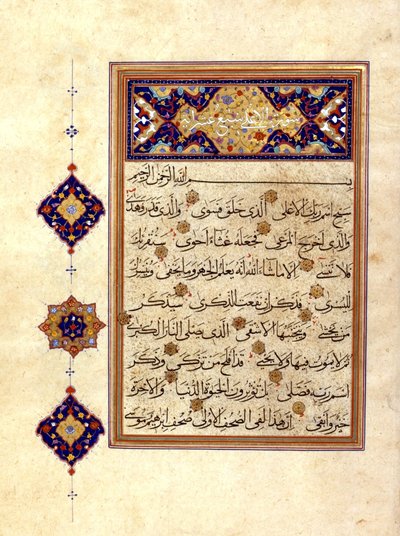 سورة الاعلى تسع عشر اية
بسم الله الرحمن الرحيم
سبح اسم ربك الاعلى الذي خلق فسوى والذي قدر فهدى
والذي اخرج المرعى فجعله غثاء احوى سنقرئك
فلا تنسى الا ما شاء الله انه يعلم الجهر وما يخفى ونيسرك
لليسرى فذكر ان نفعت الذكرى سيذكر
من يخشى ويتجنبها الاشقى الذي يصلى النار الكبرى
ثم لا يموت فيها ولا يحيى قد افلح من تزكى وذكر
اسم ربه فصلى بل تؤثرون الحيوة الدنيا والاخرة
خير وابقى ان هذا لفى الصحف الاولى صحف ابرهيم وموسى